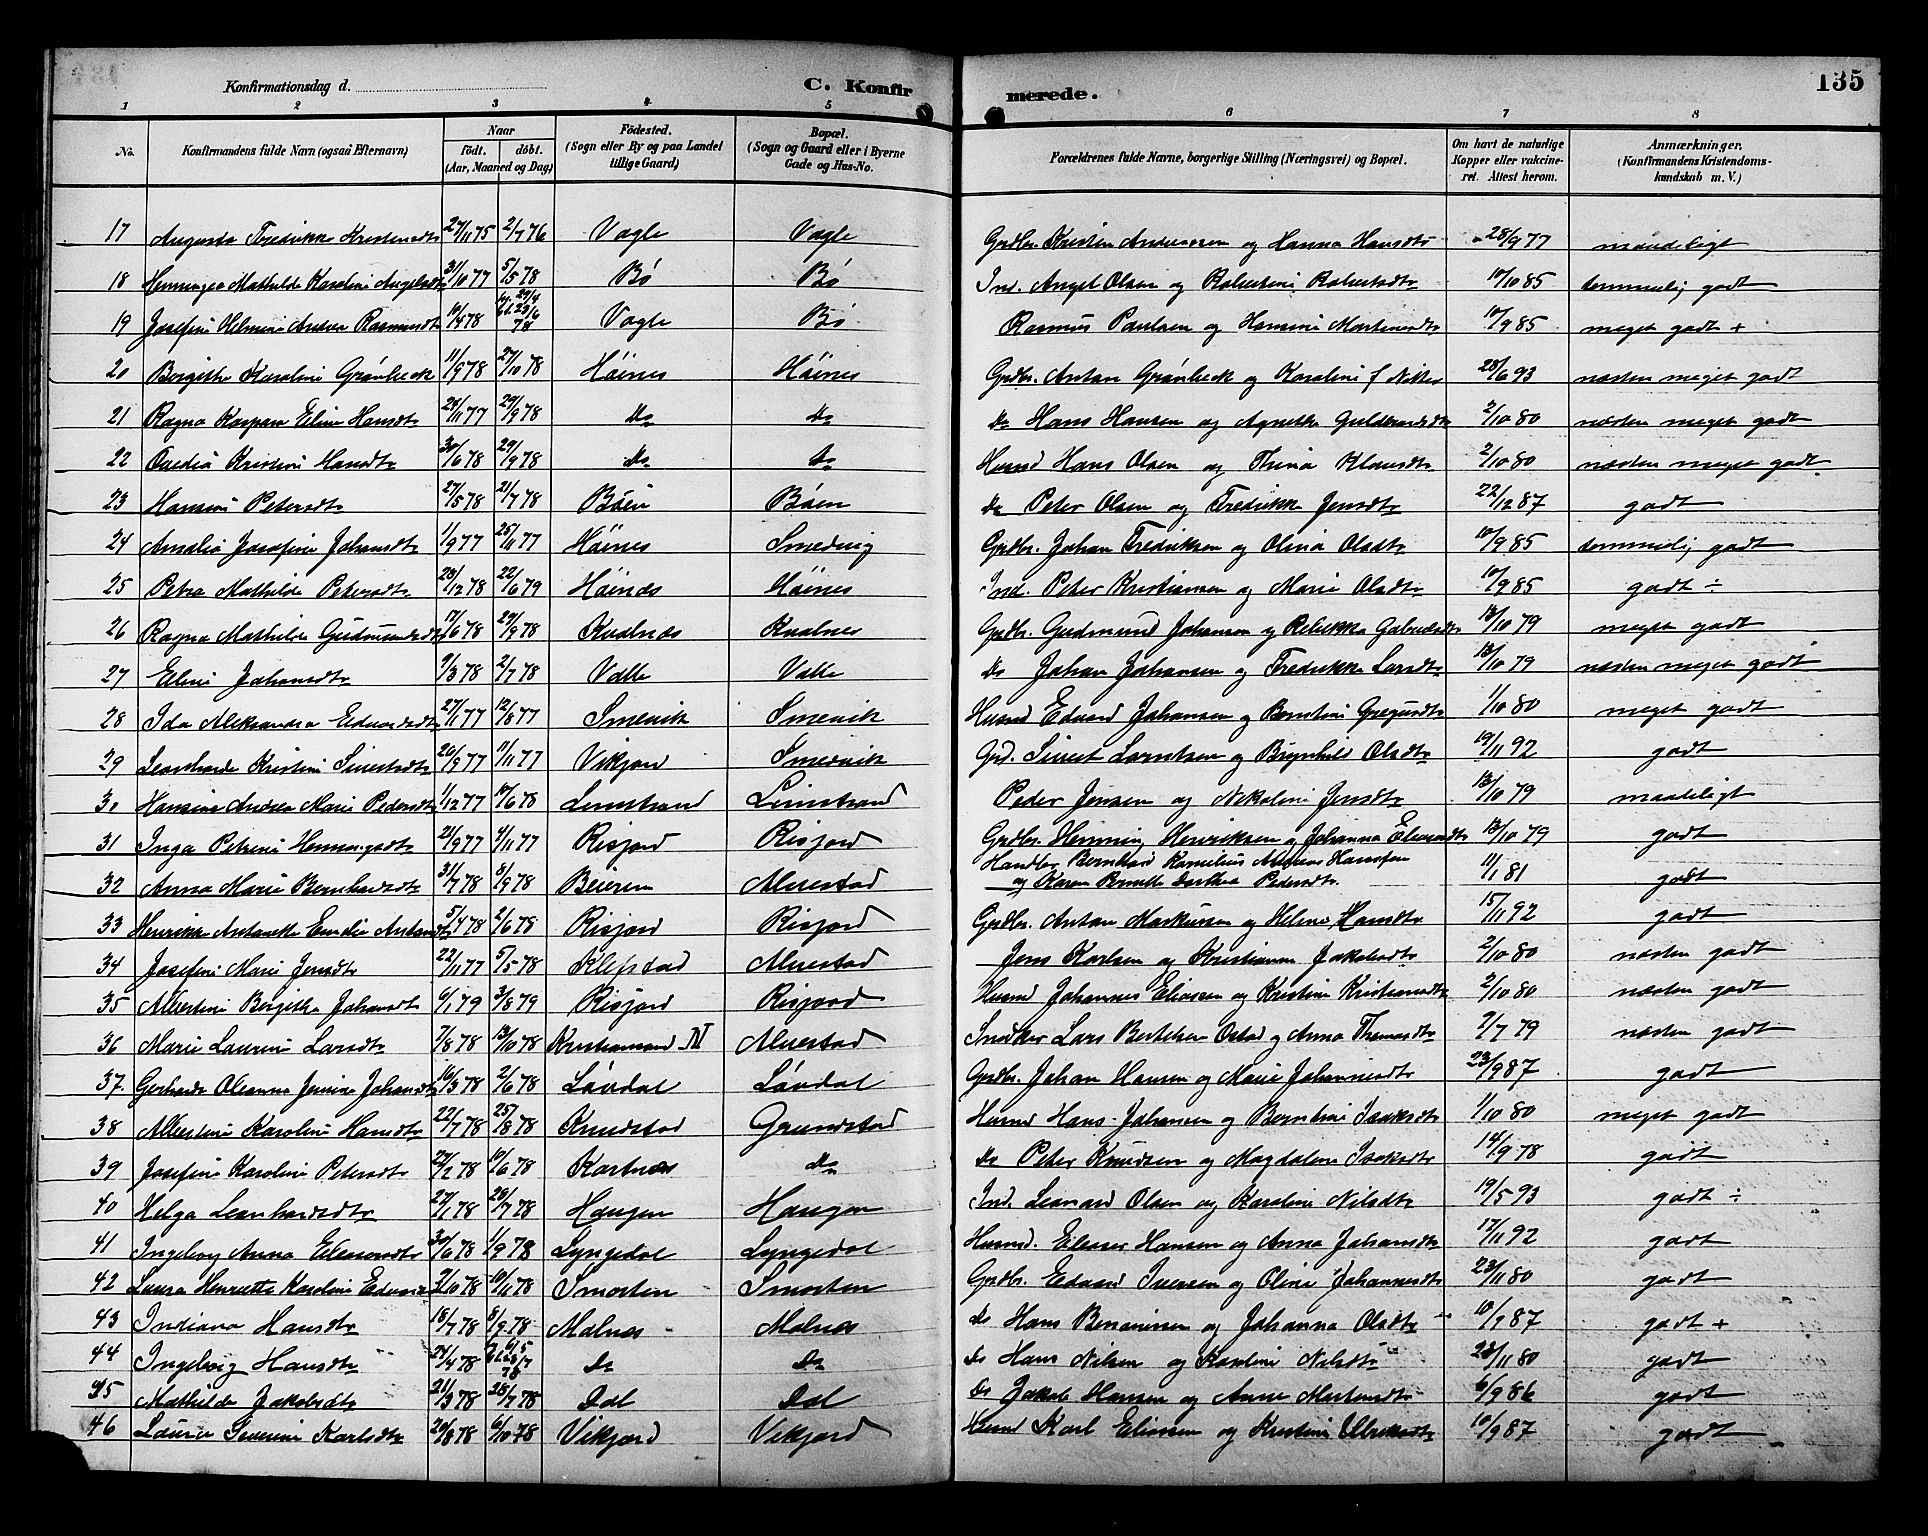 135
Konfirmationsdag d.
C. Konfirmerede.
1 2 3 4 5 6 7 8
No. Konfirmandens fulde Navn (ogsaa Efternavn) Naar født. døbt. (Aar, Maaned og Dag) Fødested. (Sogn eller By og paa Landet tillige Gaard) Bopæl. (Sogn og Gaard eller i Byerne Gade og Hus-No. Forældrenes fulde Navne, borgerlige Stilling (Næringsvei) og Bopæl. Om havt de naturlige Kopper eller vakcineret. Attest herom. Anmærkninger. (Konfirmandens Kristendomskundskab m. V.)
17 Augusta Fredrikke Kristensdtr 27/11 75 2/7 76 Vagle Vagle Grdbr. Kristen Andreassen og Hanna Hansdtr 28/9 77 maadeligt
18 Henningea Mathilde Karolini Angelsdtr 31/10 77 5/5 78 Bö Bö Ind. Angel Olsen og Robertini Robertsdtr 10/10 85 temmelig godt
19 Josefini Helmine Andrea Rasmusdtr 10/4 78 Vagle Bö Rasmus Paulsen og Hansini Mortensdtr 10/9 85 meget godt +
20 Bergithe Karolini Grønbeck 11/9 78 27/10 78 Höines Höines Grdbr. Antan Grønbeck og Karolini f 28/6 93 næsten meget godt
21 Ragna Kaspara Elini Hansdtr 24/11 77 29/9 78 Do Do Do Hans Hansen og Agnethe 2/10 80 næsten meget godt
22 Kristini Hansdtr 30/6 78 29/9 78 Do Do Husmd Hans Olsen og Trina Klausdtr 2/10 80 næsten meget godt
23 Hansini Petersdtr 27/5 78 21/7 78 Böen Böen Do Peter Olsen og Fredrikke Jensdtr 22/12 87 godt
24 Amalia Josefine Johansdtr 1/9 77 25/11 77 Höines Smedvig Grdbr. Johan Fredriksen og Olina Olsdtr 10/9 85 temmelig godt
25 Petra Mathilde Petersdtr 28/12 78 22/6 79 Höines Höines Ind. Peter Kristiansen og Marie Olsdtr 10/9 85 godt ÷
26 Ragna Mathilde Gudmundsdtr 17/6 78 29/9 78 Kvalnæs Kvalnes Grdbr. Gudmund Johansen og Rebekka Gabrielsdtr 13/10 79 meget godt
27 Elini Johansdtr 9/3 78 2/7 78 Valle Valle Do Johan Johansen og Fredrikke Larsdtr 13/10 79 næsten meget godt
28 Ida Aleksandra Edvardsdtr 27/1 77 12/8 77 Smevik Smevik Husmd Edvard Johansen og Berntini Gregusdtr 1/10 80 meget godt
29 Leonharde Kristini Sivertsdtr 20/9 77 11/11 77 Vikjord Smervik Grd. Sivert Lorntsen og Brynhild Olsdtr 19/11 92 godt
30 Hansine Andrea Marie Pedersdtr 1/12 77 10/6 78 Limstrand Limstrand Peder Jensen og Nikolini Jensdtr 13/10 79 maadeligt
31 Inga Petrini Henningsdtr 21/9 77 4/11 77 Risjord Risjord Grdbr. Henning Henriksen og Johanna Eliasdtr 13/10 79 godt
32 Anna Marie Bernhardsdtr 31/7 78 8/9 78 Beieren Alvestad Handler Bernhard Kornelius Hansen og Karen Dorthea Pedersdtr. 11/1 81 godt
33 Henrikke Antanette Emelie Antansdtr 5/4 78 2/6 78 Risjord Risjord Grdbr. Antan Markussen og Helene Hansdtr 15/11 92 godt
34 Josefini Marie Jensdtr 22/11 77 5/5 78 Klepstad Alvestad Jens Karlsen og Kristianna Jakobsdtr 2/10 80 næsten godt
35 Albertini Bergithe Johansdtr 6/1 79 3/8 79 Risjord Risjord Husmd Johannes Eliassen og Kristini Kristiansdtr 2/10 80 næsten godt
36 Marie Laurini Larsdtr 7/8 78 13/10 78 Kristiansund N Alvestad Snedker Lars Bertelsen og Anna Thomasdtr 2/7 79 næsten godt
37. Gerharde Oleanna Jensine Johansdtr 16/3 78 2/6 78 Lövdal Lövdal Grdbr. Johan Hansen og Marie Johannesdtr 23/9 87 godt
38 Albertini Karolini Hansdtr 22/7 78 25/8 78 Knudstad Grundstad Husmd Hans Johansen og Berntini Isaksdtr 1/10 80 meget godt
39 Josefini Karolini Petersdtr 22/2 78 10/6 78 Kartnæs Do Do Peter Knudsen og Magdalena Isaksdtr 14/9 78 godt
40 Helga Leonhardsdtr 27/1 78 28/7 78 Haugen Haugen Ind. Leonard Olsen og Karolini Nilsdtr 19/5 93 godt ÷
41 Ingeborg Anna Eleasersdtr 30/6 78 1/9 78 Lyngedal Lyngedal Husmd. Eleaser Hansen og Anna Johansdtr 17/11 92 godt
42 Laura Henriette Karolini Edvardsdtr 2/10 78 10/11 78 Smorten Smorten Grdbr. Edvard Iversen og Olini Johannesdtr 23/11 80 godt
43 Indiana Hansdtr 18/7 78 8/9 78 Malnes Malnes Do Hans Benonisen og Johanna Olsdtr 10/9 87 godt +
44 Ingeborg Hansdtr 24/4 78 Do Do Do Hans Nilsen og Karolini Nilsdtr 23/11 80 godt
45 Mathilde Jakobsdtr 21/3 78 28/7 78 Dal Dal Do Jakob Hansen og Anne Mortensdtr 6/9 86 godt
46 Laura Severini Karlsdtr 20/8 78 6/10 78 Vikjord Vikjord Husmd Karl Eliassen og Kristini Ulriksdtr 10/9 87 godt